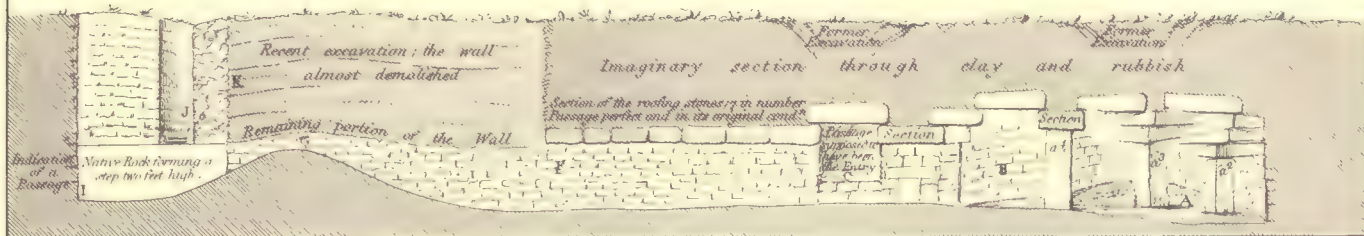 Former
Excavation
Former
Excavation
Recent excavation: the wall
almost demolished
K
Imaginary section through clay and rubbish
J
6
Section of the roofing stones 17 in number
Passage perfect and in its original cond.n
Remaining portion of the Wall
Indication
of a
Passage
Native Rock forming a
step two feet high.
I
F
Passage
supposed to
have been
the Entry
Section
B
Section
a
a
a
A